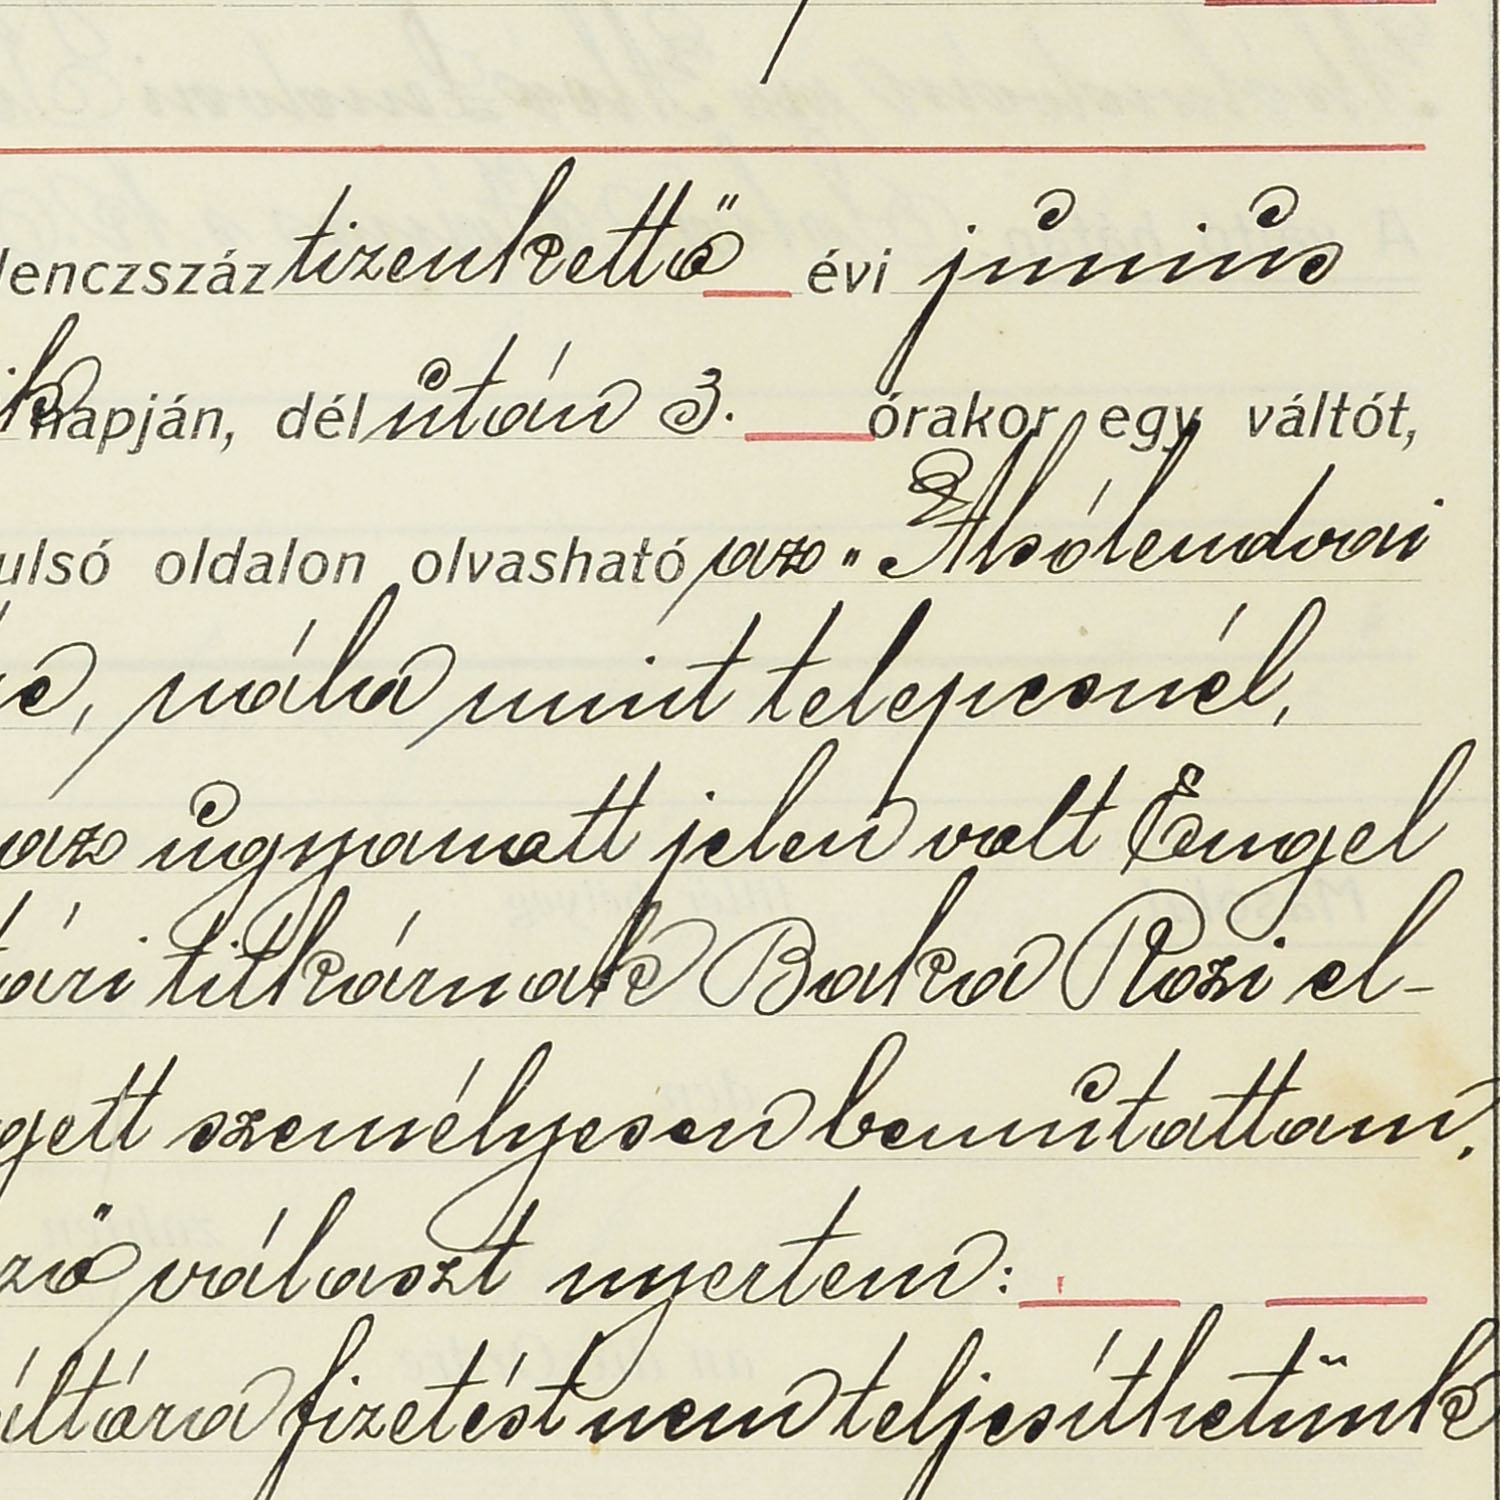 lenczszáz tizenkettő évi június
ik napján, dél után 3. órakor egy váltót,
ulsó oldalon olvasható az „Alsólendvai
nála mint telepesnél,
az ugyanott jelen volt Engel
tári titkárnak Baka Rozi el-
gett személyesen bemutattam,
ző választ nyertem:
fizetést nem teljesíthetünk